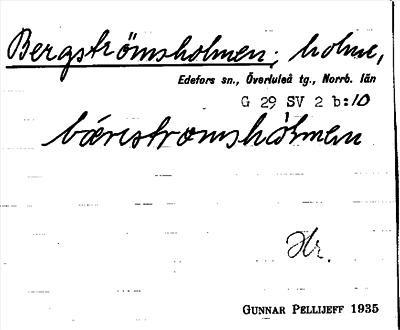 Bergströmsholmen; holme,
Edefors sn., Överluleå tg., Norrb. län
G 29 SV 2 b:10
Hr.
GUNNAR PELLIJEFF 1935